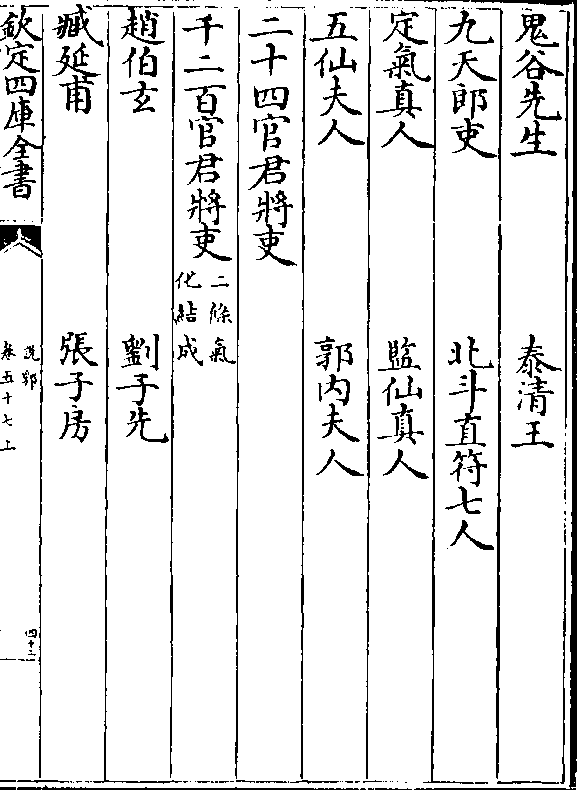 鬼谷先生　泰清王
九天郎吏　北斗直符七人
定氣真人　監仙真人
五仙夫人　郭内夫人
二十四官君將吏
千二百官君將吏二條氣化結成
趙伯玄　劉子先
臧延甫　張子房
欽定四庫全書　説郛卷五十七上　四十三